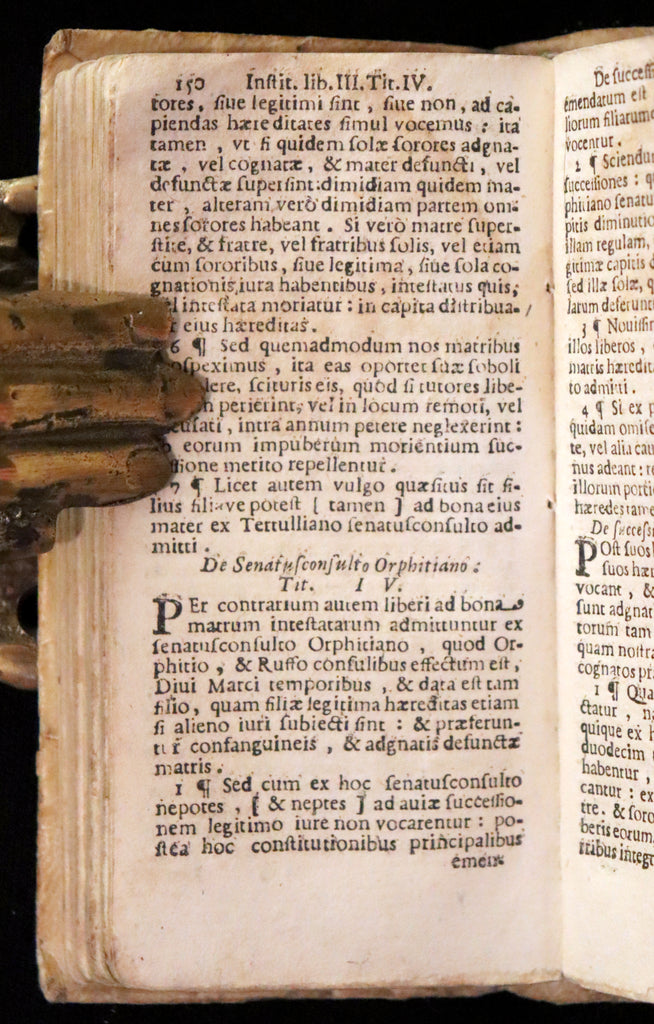 150 Instit. lib.III.Tit.IV.
tores, siue legitimi sint, siue non, ad ca-
piendas hæreditates simul vocemus: ita
tamen, vt si quidem solæ sorores adgna-
tæ, vel cognatæ, & mater defuncti, vel
defunctæ supersint: dimidiam quidem ma-
ter, alteram verò dimidiam partem om-
nes sorores habeant. Si verò matre super-
stite, & fratre, vel fratribus solis, vel etiam
cum sororibus, siue legitima, siue sola co-
gnationis iura habentibus, intestatus quis,
intestata moriatur: in capita distribua-
eius hæreditas.
6 ¶ Sed quemadmodum nos matribus
ospeximus, ita eas oportet suæ soboli
lere, scituris eis, quòd si tutores libe-
perierint, vel in locum remoti, vel
cusati, intra annum petere neglexerint:
eorum impuberum morientium suc-
sione merito repellentur.
7 ¶ Licet autem vulgo quæsitus sit fi-
lius filiave potest [ tamen ] ad bona eius
mater ex Tertulliano senatusconsulto ad-
mitti.
De Senatusconsulto Orphitiano:
Tit. IV.
PEr contrarium autem liberi ad bona
matrum intestatarum admittuntur ex
senatusconsulto Orphitiano, quod Or-
phitio, & Ruffo consulibus effectum est,
Diui Marci temporibus, & data est tam
filio, quam filiæ legitima hæreditas etiam
si alieno iuri subiecti sint: & præferun-
tur consanguineis, & adgnatis defunctæ
matris.
1 ¶ Sed cum ex hoc senatusconsulto
nepotes, [ & neptes ] ad auiæ successio-
nem legitimo iure non vocarentur: po-
stea hoc constitutionibus principalibus
emen-
De success
emendatum est
liorum filiarum
vocentur.
2 ¶ Sciendu
successiones: q
phitiano senatu
pitis diminutio
illam regulam,
gitimæ capitis d
sed illæ solæ, q
larum deferunt
3 ¶ Nouissi
illos liberos,
matris hæredit
to admitti.
4 ¶ Si ex p
quidam omise
te, vel alia cau
nus adeant: t
illorum porti
hæredes tame
De success
POst suos
suos hær
vocant, &
sunt adgnat
torum tam
quam nostra
cognatos pr
1 ¶ Qua
ctatur, n
quique ex h
duodecim
habentur,
cantur: ex
tre, & soro
beris eorum
tribus integr